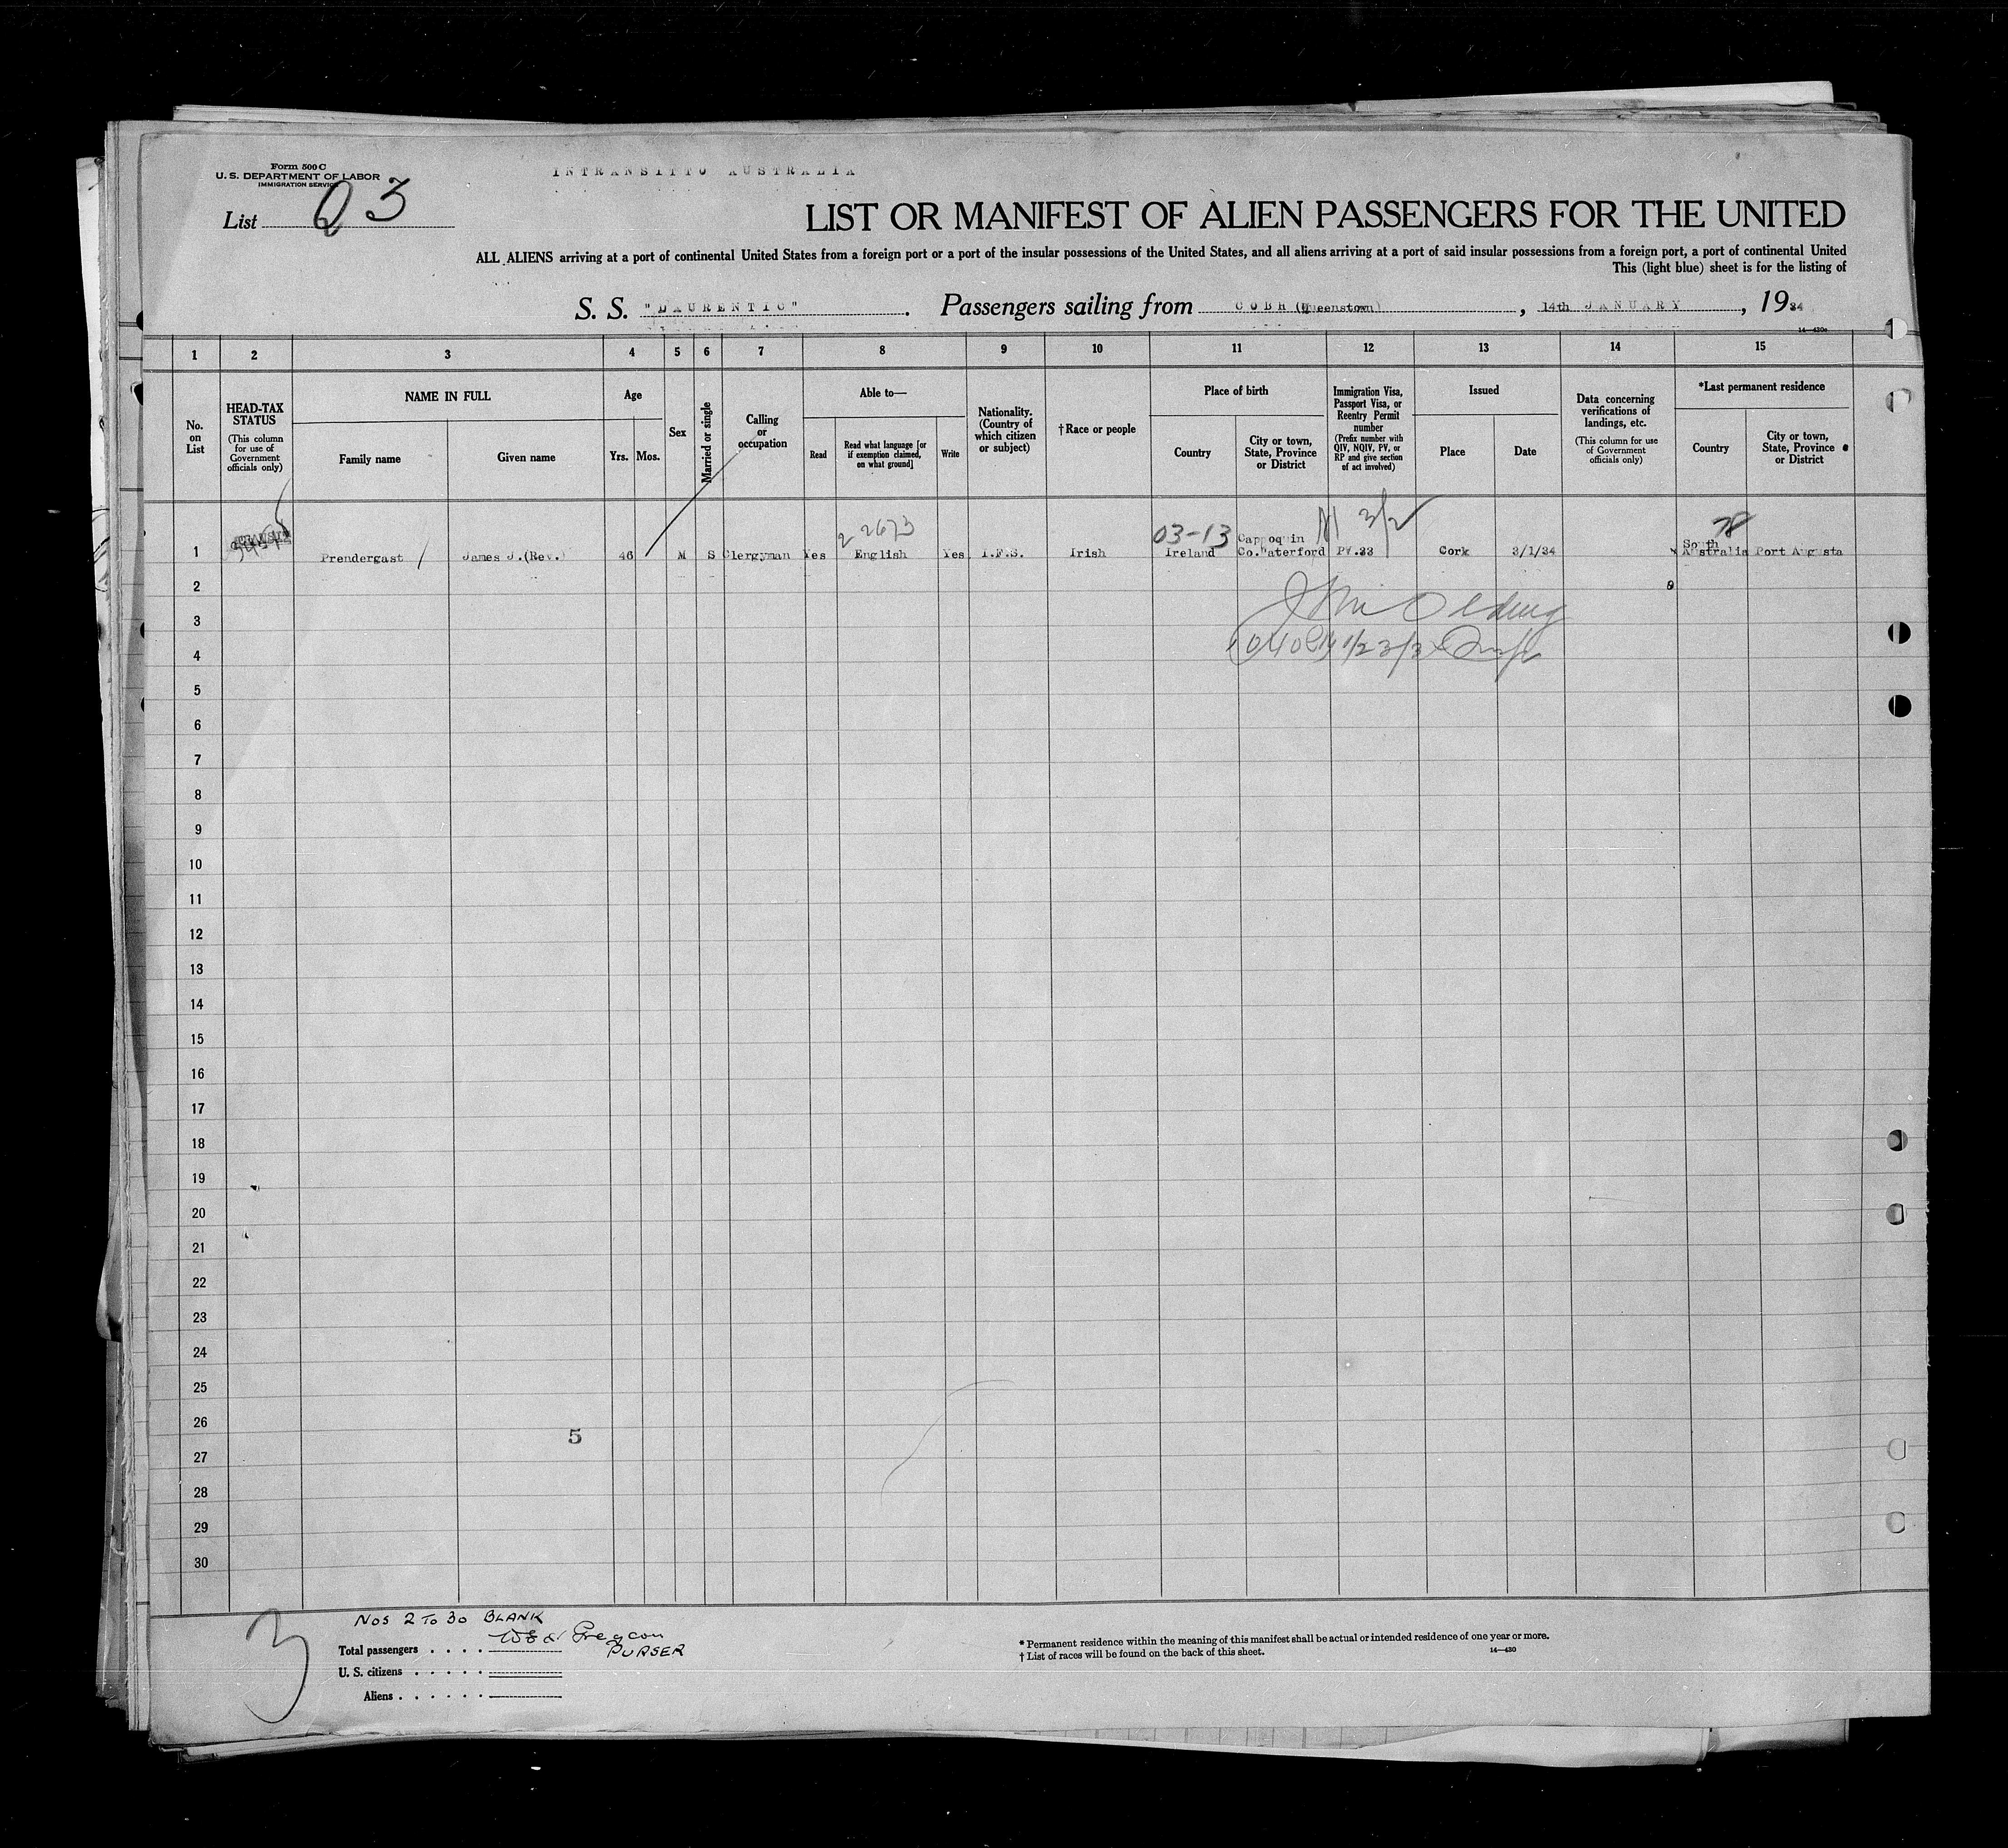 Form 500 C
U. S. DEPARTMENT OF LABOR
IMMIGRATION SERVICE
INTRANSITTO AUSTRALIA
List 03
LIST OR MANIFEST OF ALIEN PASSENGERS FOR THE UNITED
ALL ALIENS arriving at a port of continental United States from a foreign port or a port of the insular possessions of the United States, and all aliens arriving at a port of said insular possessions from a foreign port, a port of continental United
This (light blue) sheet is for the listing of
S. S. "LAURENTIC". Passengers sailing from COBH (Queenstown), 14th JANUARY, 1934
14—430a
1 2 3 4 5 6 7 8 9 10 11 12 13 14 15
No. on List
HEAD-TAX STATUS
(This column for use of Government officials only)
NAME IN FULL
Family name
Given name
Age
Yrs. Mos.
Sex
Married or single
Calling or occupation
Able to—
Read
Read what language [or if exemption claimed, on what ground]
Write
Nationality. (Country of which citizen or subject)
†Race or people
Place of birth
Country
City or town, State, Province or District
Immigration Visa, Passport Visa, or Reentry Permit number
(Prefix number with QIV, NQIV, PV, or RP and give section of act involved)
Issued
Place
Date
Data concerning verifications of landings, etc.
(This column for use of Government officials only)
*Last permanent residence
Country
City or town, State, Province or District
2 2673
03-13
3/2
78
1 Prendergast James J.(Rev.) 46 M S Clergyman Yes English Yes I.F.S. Irish Ireland Cappoquin Co.Waterford PV.33 Cork 3/1/34 South Australia Port Augusta
2
3
4
5
6
7
8
9
10
11
12
13
14
15
16
17
18
19
20
21
22
23
24
25
26
5
27
28
29
30
3
NOS 2 TO 30 BLANK
Total passengers
PURSER
U. S. citizens
Aliens
* Permanent residence within the meaning of this manifest shall be actual or intended residence of one year or more.
† List of races will be found on the back of this sheet.
14—430